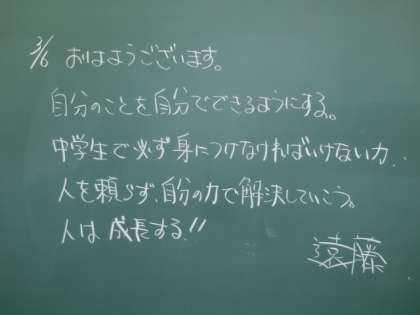 3/6 おはようございます。
自分のことを自分でできるようにする。
中学生で必ず身につけなければいけない力..
人を頼らず、自分の力で解決していこう。
人は成長する!!
遠藤